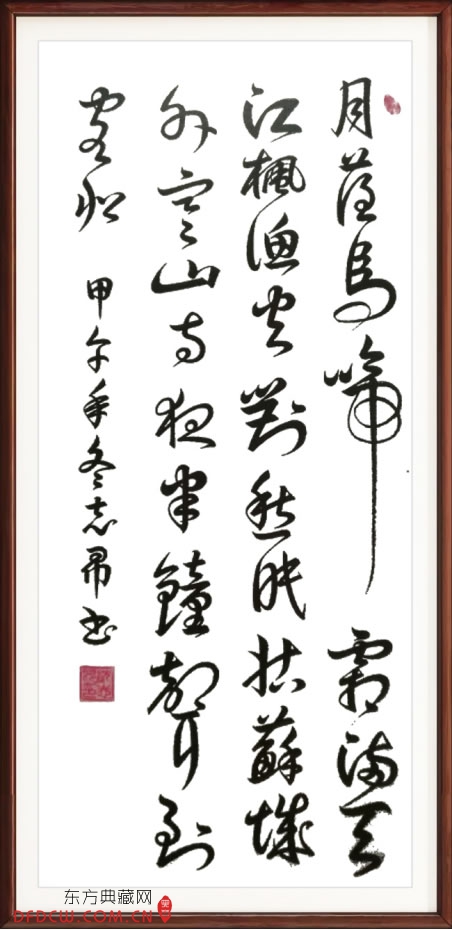 月落烏啼霜滿天
江楓漁火對愁眠姑蘇城
外寒山寺夜半鐘聲到
客船 甲午年冬志书
东方典藏网
DFDCW.COM.CN